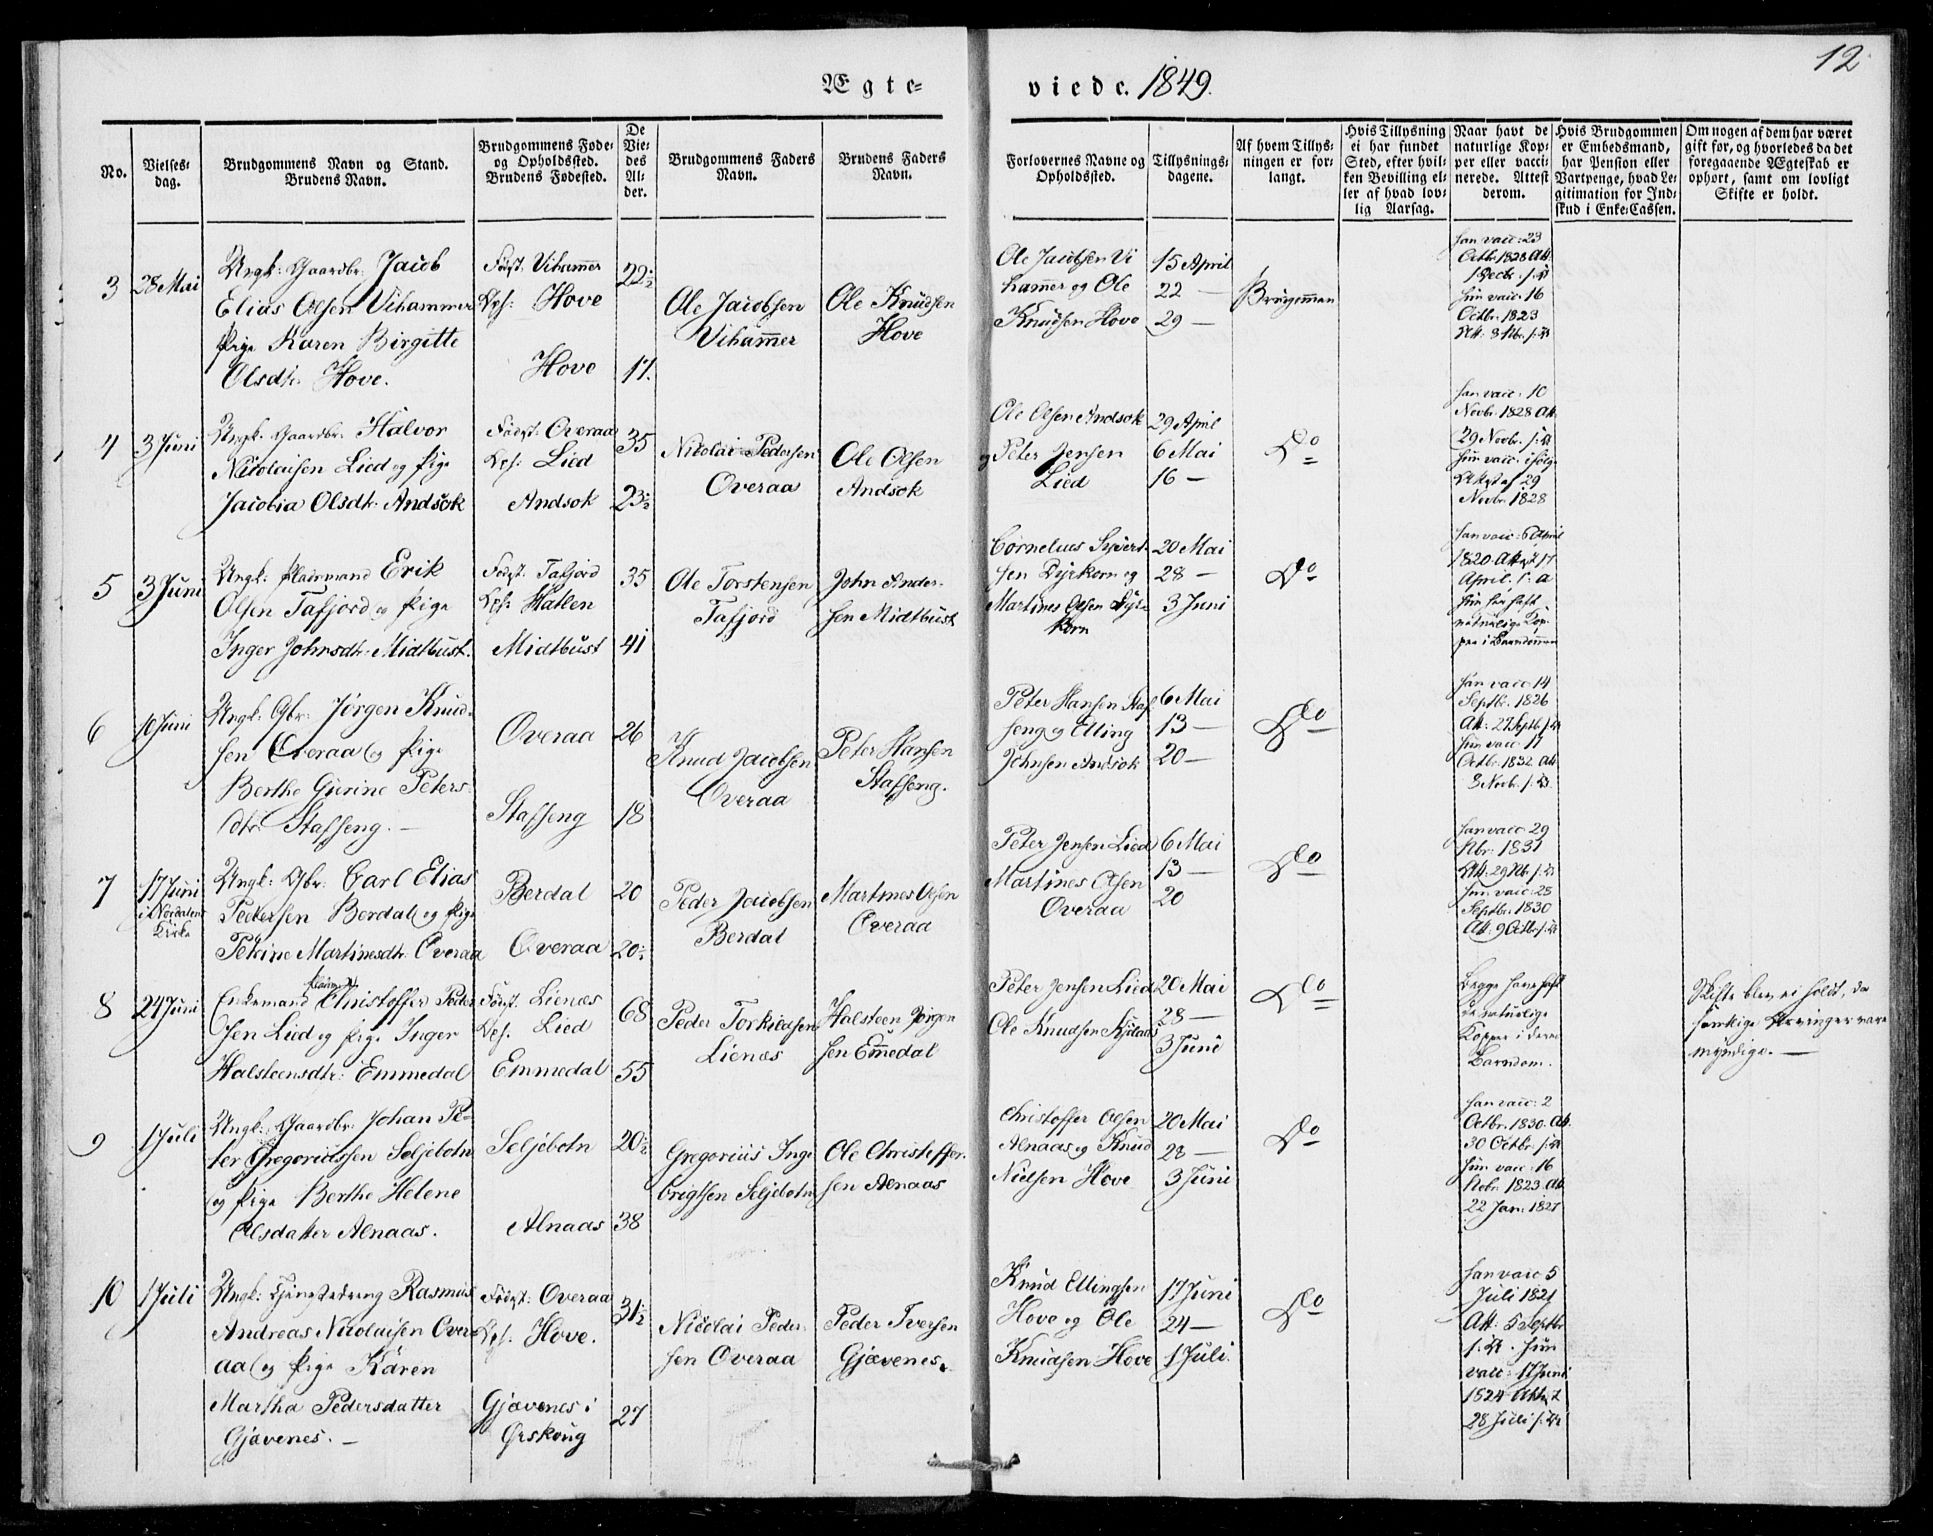 12
Ægte-
viede. 1849.
No.
Vielses-
dag.
Brudgommens Navn og Stand.
Brudens Navn.
Brudgommens Føde-
og Opholdssted.
Brudens Fødested.
De
Vie-
des
Al-
der.
Brudgommens Faders
Navn.
Brudens Faders
Navn.
Forlovernes Navne og
Opholdssted.
Tillysnings-
dagene.
Af hvem Tillys-
ningen er for-
langt.
Hvis Tillysning
ei har fundet
Sted, efter hvil-
ken Bevilling el-
ler af hvad lov-
lig Aarsag.
Naar havt de
naturlige Kop-
per eller vacci-
nerede. Attest
derom.
Hvis Brudgommen
er Embedsmand,
har Pension eller
Vartpenge, hvad Le-
gitimation for Ind-
skud i Enke-Cassen.
Om nogen af dem har været
gift før, og hvorledes da det
foregaaende Ægteskab er
ophørt, samt om lovligt
Skifte er holdt.
3
28 Mai
Ungk: Gaardbr: Jacob
Elias Olsen Vihammer
Pige Karen Birgitte
Olsdtr. Hove.
Fødst: Vihammer
Hove
Hove
22½
17.
Ole Jacobsen
Vihammer
Ole Knudsen
Hove
Ole Jacobsen Vi
hammer og Ole
Knudsen Hove
15 April
22 —
29 —
Brudgommen
han vacc: 23
Octbr. 1828 Att.
hun vacc: 16
Octbr. 1823
4
3 Juni
Ungk. Gaardbr. Halvor
Nicolaisen Lied og Pige
Jacobia Olsdtr. Andsok
Fødst: Overaa
Lied
Andsok
35
23½
Nicolai Pedersen
Overaa
Ole Olsen
Andsok
Ole Olsen Andsok
og Peter Jensen
Lied
29 April
6 Mai
16 —
Do
han vacc: 10
Novbr. 1828 Att.
29 Novbr.
hun vacc. ifølge
Attst af 29
Novbr. 1828
5
3 Juni
Ungk: Erik
Olsen Tafjord og Pige
Inger Johnsdtr. Midtbust.
Fødst: Tafjord
Hatlen
Midtbust
35
41
Ole Torstensen
Tafjord
John Ander-
sen Midtbust
Cornelius Syvert-
sen Dyrkorn og
Martines Olsen Dyr-
korn
20 Mai
28 —
3 Juni
Do
han vacc: 6 April
1820 Attst 17
April
hun har haft
naturlige Kop-
per i Barndommen
6
10 Juni
Ungk: Gbr: Jørgen Knud-
sen Overaa og Pige
Berthe Gurine Peters
dtr. Stafseng. —
Overaa
Stafseng
26
18
Knud Jacobsen
Overaa
Peter Hansen
Stafseng.
Peter Hansen Staf
seng og Elling
Johnsen Andsok
6 Mai
13 —
20 —
Do
han vacc: 14
Septbr. 1826
Att: 27 Septb.
hun vacc: 17
Octbr. 1832 Att
3 Novbr.
7
17 Juni
i Nordalens
Kirke
Ungk: Gbr: Carl Elias
Pedersen Berdal og Pige
Petrine Martinesdtr. Overaa
Berdal
Overaa
20
20½
Peder Jacobsen
Berdal
Martines Olsen
Overaa
Peter Jensen Lied
Martines Olsen
Overaa
6 Mai
13 —
20
Do
han vacc: 29
Nbr: 1831
Att: 29 Nbr.
hun vacc: 25
Septbr. 1830
Att: 9 Octbr
8
24 Juni
Enkemand Christoffer Peder
sen Lied og Pige Inger
Halsteensdtr: Emmedal
Fødst. Lienæs
Lied
Emmedal
68
55
Peder Torkildsen
Lienæs
Halsteen Jørgen
sen Emmedal
Peter Jensen Lied
Ole Knudsen
20 Mai
28 —
3 Juni
Do
Begge have haft
de naturlige
Kopper i deres
Barndom.
Skifte blev ei holdt, da
samtlige Arvinger vare
myndige. —
9
1 Juli
Ungk: Gaardbr. Johan Pe-
ter Gregoriussen Seljebotn
og Pige Berthe Helene
Olsdatter Alnaas.
Seljebotn
Alnaas
20½
38
Gregorius Inge
brigtsen Seljebotn
Ole Christoffer-
sen Alnaas
Christoffer Olsen
Alnaas og Knud
Nielsen Hove
20 Mai
28 —
3 Juni
Do
han vacc: 2
Octbr. 1830 Att.
30 Octbr.
hun vacc: 16
Nobr. 1823 Att.
22 Jan: 1827
10
1 Juli
Ungk: Tjenestedreng Rasmus
Andreas Nicolaisen Over-
aa og Pige Karen
Martha Pedersdatter
Gjævenes. —
Fødst: Overaa
Hove.
Gjævenes i
Ørskoug
31½
27
Nicolai Peder-
sen Overaa
Peder Iversen
Gjævenes.
Knud Ellingsen
Hove og Ole
Knudsen Hove
17 Juni
24 —
1 Juli.
Do
han vacc 5
Juli 1821
Att: 5 Septbr
hun
vacc: 17 Juni
1824 Attst
28 Juli